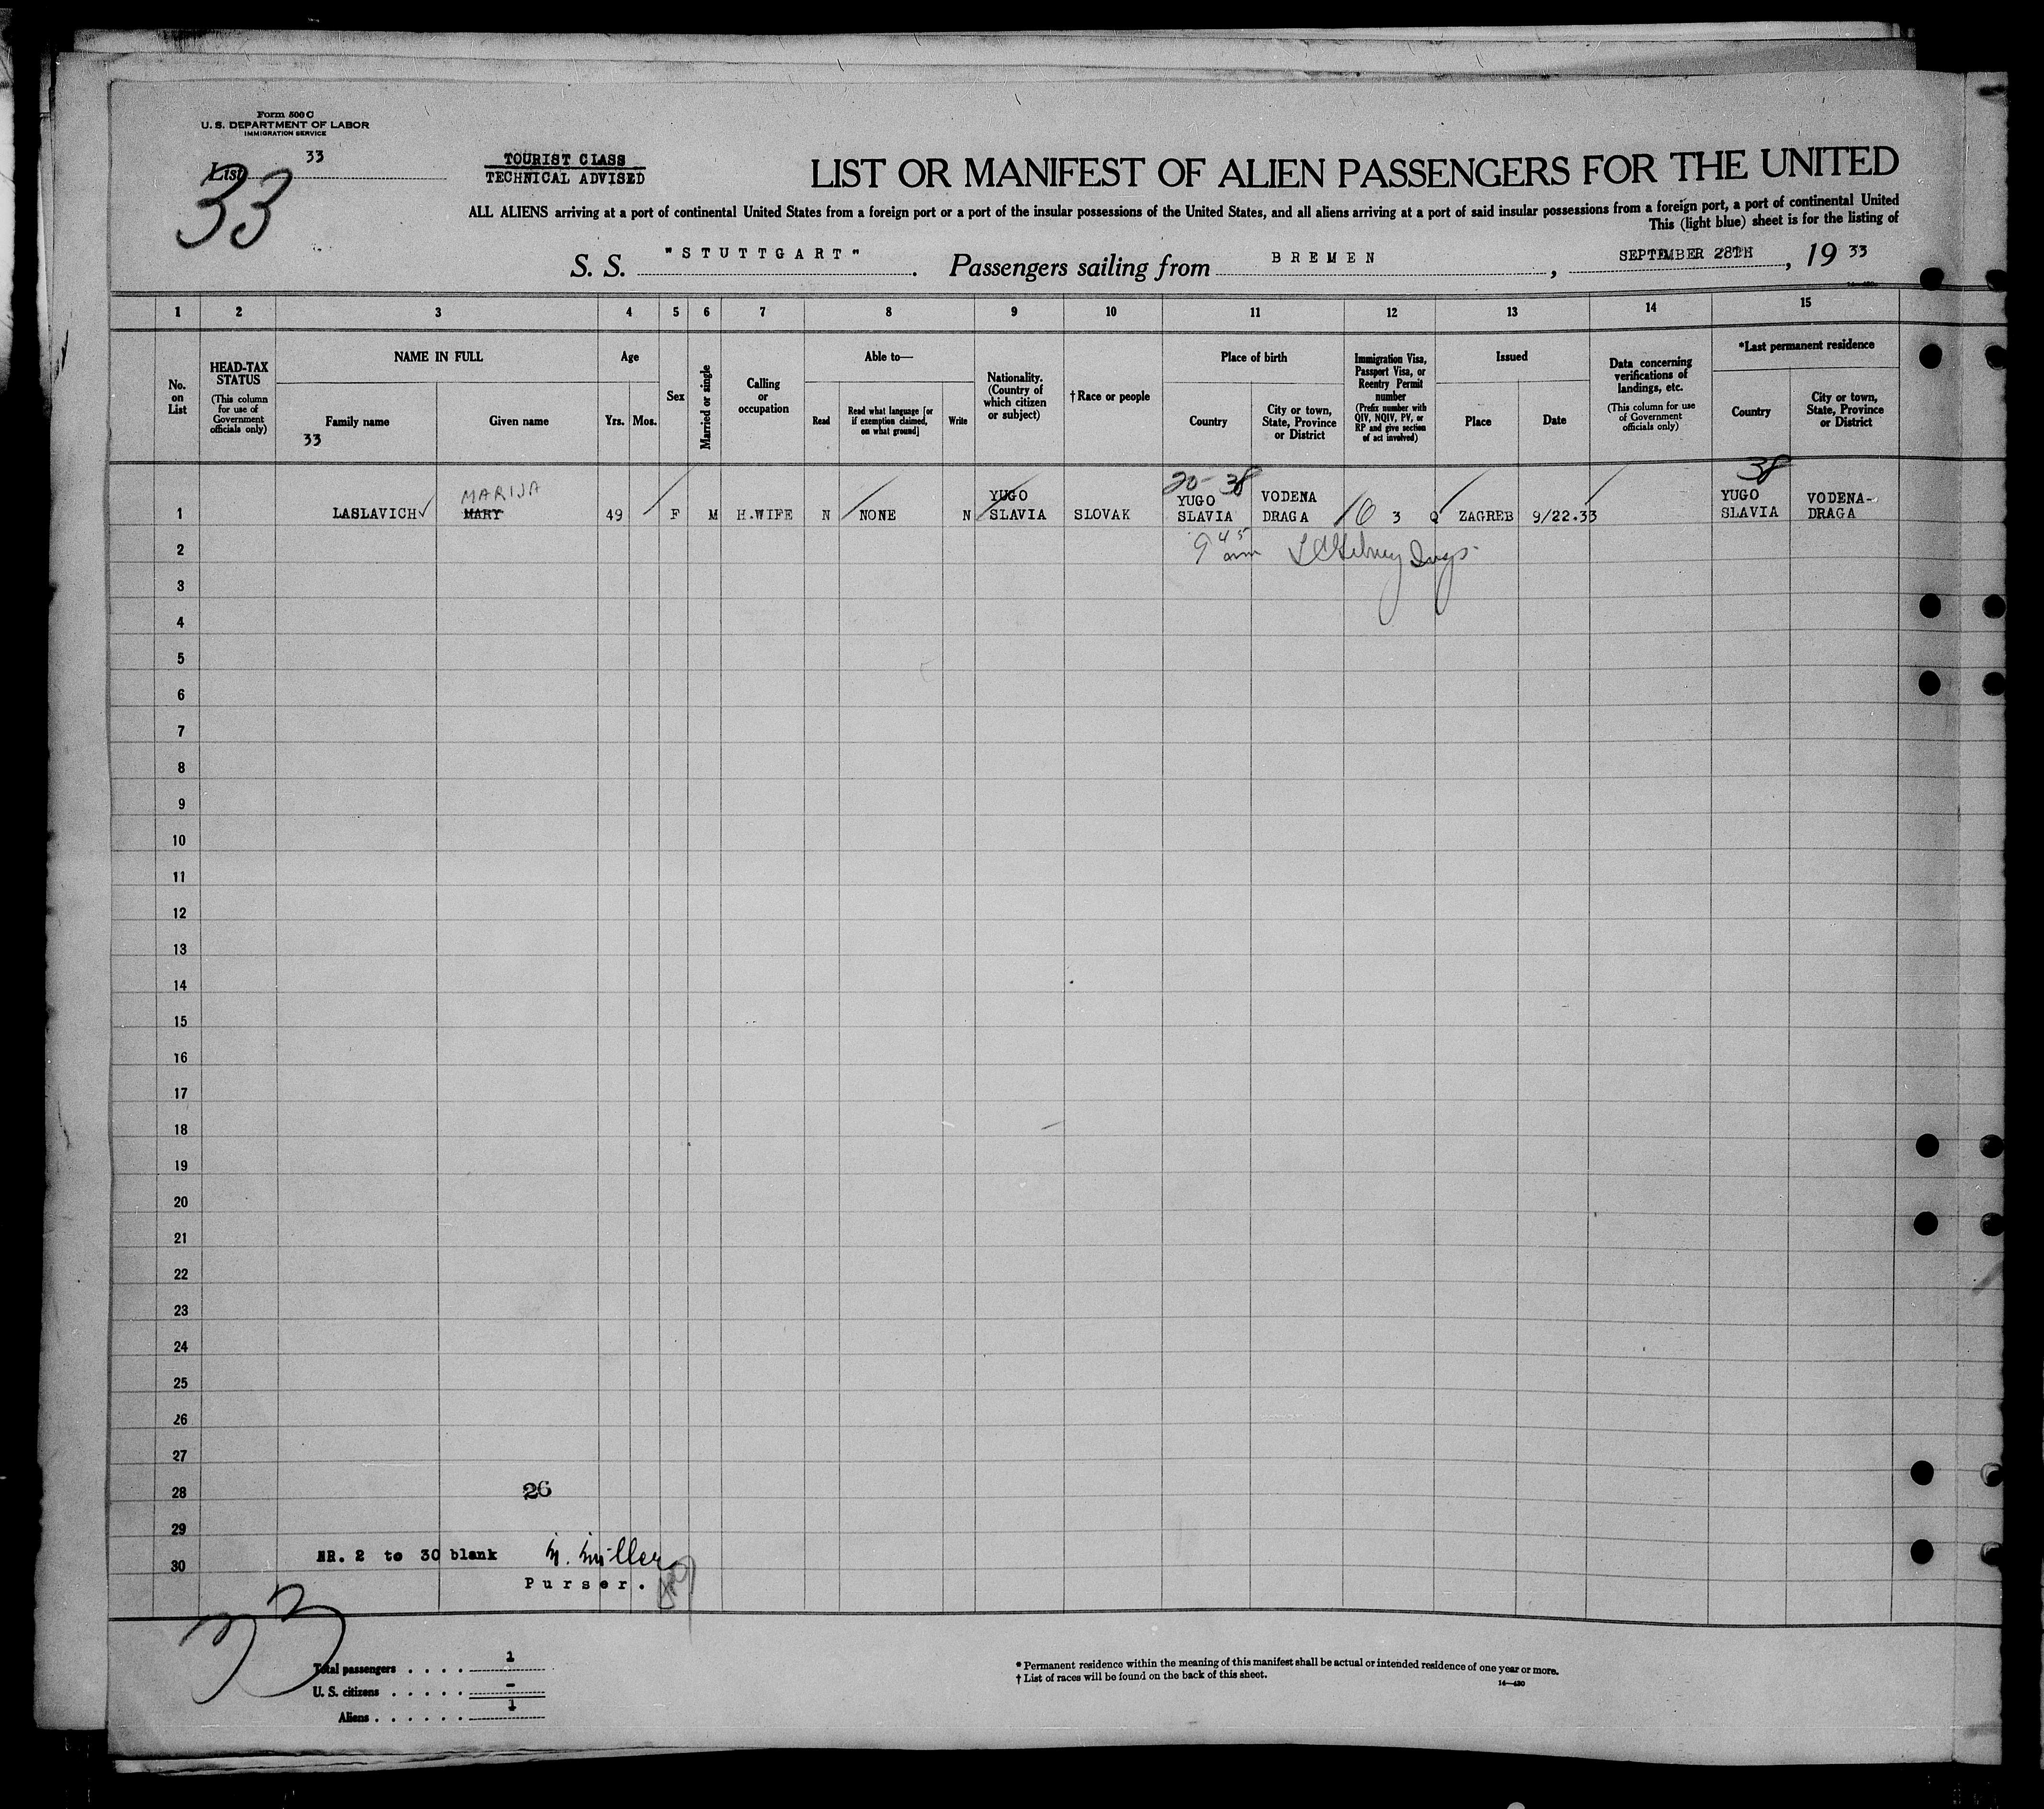 Form 500 C
U. S. DEPARTMENT OF LABOR
IMMIGRATION SERVICE
List 33
33
TOURIST CLASS
TECHNICAL ADVISED
LIST OR MANIFEST OF ALIEN PASSENGERS FOR THE UNITED
ALL ALIENS arriving at a port of continental United States from a foreign port or a port of the insular possessions of the United States, and all aliens arriving at a port of said insular possessions from a foreign port, a port of continental United
This (light blue) sheet is for the listing of
S. S. "STUTTGART". Passengers sailing from BREMEN, SEPTEMBER 28TH, 19 33
1 2 3 4 5 6 7 8 9 10 11 12 13 14 15
No. on List
HEAD-TAX STATUS
(This column for use of Government officials only)
NAME IN FULL
Family name
33
Given name
Age
Yrs. Mos.
Sex
Married or single
Calling or occupation
Able to—
Read
Read what language [or if exemption claimed, on what ground]
Write
Nationality. (Country of which citizen or subject)
†Race or people
Place of birth
Country
City or town, State, Province or District
Immigration Visa, Passport Visa, or Reentry Permit number
(Prefix number with QIV, NQIV, PV, or RP and give section of act involved)
Issued
Place
Date
Data concerning verifications of landings, etc.
(This column for use of Government officials only)
*Last permanent residence
Country
City or town, State, Province or District
20-38
38
MARIJA
1 LASLAVICH MARY 49 F M H.WIFE N NONE N YUGO SLAVIA SLOVAK YUGO SLAVIA VODENA DRAGA 3 Q ZAGREB 9/22.33 YUGO SLAVIA VODENA-DRAGA
2 9 45 am
3
4
5
6
7
8
9
10
11
12
13
14
15
16
17
18
19
20
21
22
23
24
25
26
27
28 26
29
NR. 2 to 30 blank
30
Purser.
33
Total passengers . . . . 1
U. S. citizens . . . . . -
Aliens . . . . . . 1
* Permanent residence within the meaning of this manifest shall be actual or intended residence of one year or more.
† List of races will be found on the back of this sheet.
14—430